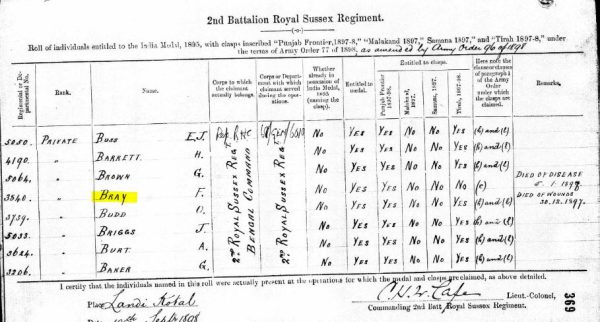 2nd Battalion Royal Sussex Regiment.
Roll of individuals entitled to the India Medal, 1895, with clasps inscribed "Punjab Frontier, 1897-8," "Malakand 1897," Samana 1897," and "Tirah 1897-8," under
the terms of Army Order 77 of 1898. as amended by Army Order 96 of 1898
Regimental or Departmental No. Rank. Name. Corps to which the claimant actually belongs. Corps or Department with which claimant served during the operations. Whether already in possession of India Medal, 1895 (naming the clasp). Entitled to medal. Entitled to clasps. Punjab Frontier 1897-98. Malakand, 1897. Samana, 1897. Tirah, 1897-8. Here note the clause or clauses of paragraph of the Army Order under which the clasps are claimed. Remarks,
5050. Private Buss E.J. No Yes Yes No No Yes (b) and (l)
4190. " Barrett H. No Yes Yes No No Yes (b) and (l)
5064. " Brown G. No Yes Yes No No Yes (b) and (l)
3540. " Bray F. No Yes Yes No No No (c) Died of disease 5.1.1898
3739. " Budd O. No Yes Yes No No Yes (b) and (l) Died of wounds 30.12.1897.
5033. " Briggs J. No Yes Yes No No Yes (b) and (l)
3624. " Burt A. No Yes Yes No No Yes (b) and (l)
3206. " Baker G. No Yes Yes No No Yes (b) and (l)
2nd Royal Sussex Regt
Bengal Command
2nd Royal Sussex Regt
369
I certify that the individuals named in this roll were actually present at the operations for which the medal and clasps are claimed, as above detailed.
Place Landi Kotal
Sept 1898
C.H.W. Cafe Lieut.-Colonel,
Commanding 2nd Batt. Royal Sussex Regiment.